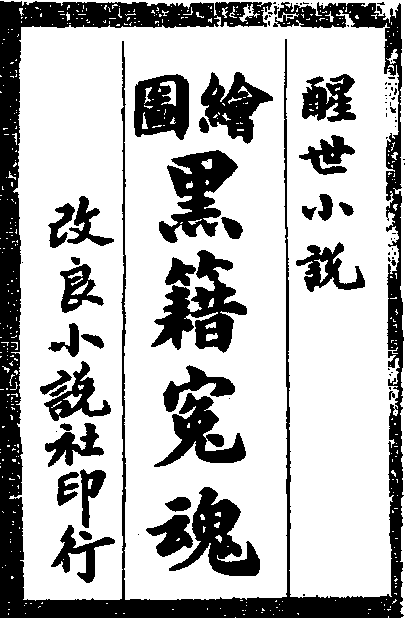 醒世小說
繪圖
黑籍冤魂
改良小說社印行